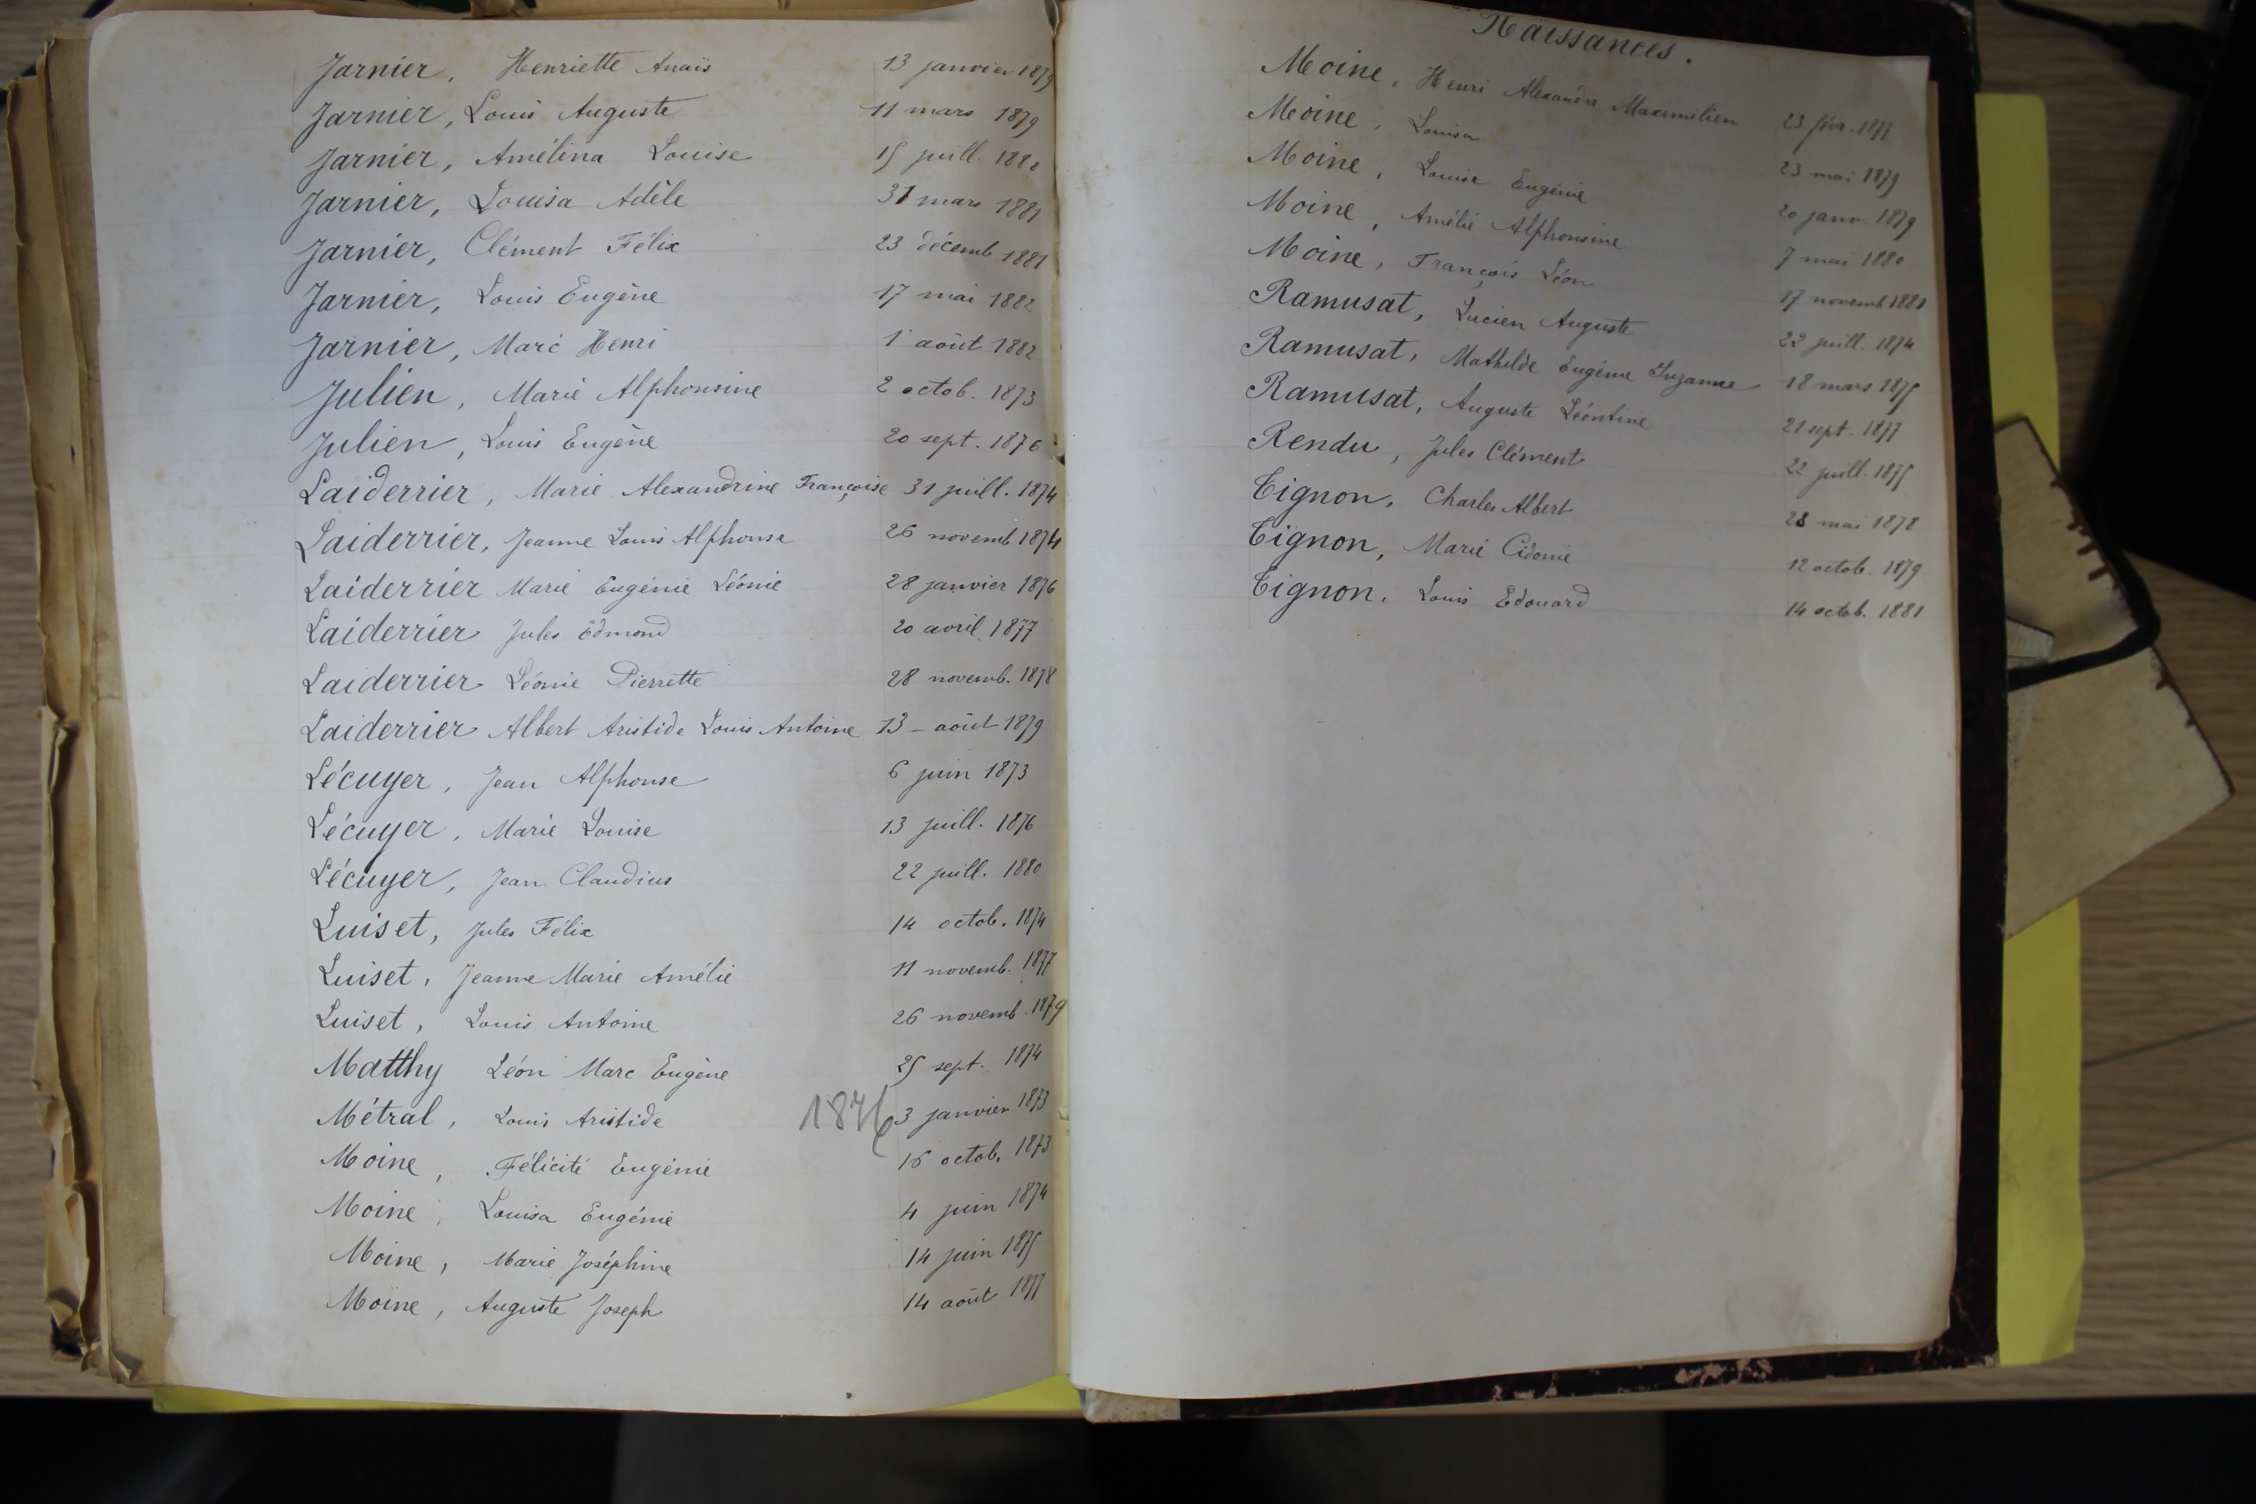 Jarnier, Henriette Anaïs 13 janvier 1879
Jarnier, Louis Auguste 11 mars 1879
Jarnier, Amélina Louise 15 juill. 1880
Jarnier, Louisa Adèle 31 mars 1881
Jarnier, Clément Félix 23 décemb 1881
Jarnier, Louis Eugène 17 mai 1882
Jarnier, Marc Henri 1 août 1882
Julien, Marie Alphonsine 2 octob. 1873
Julien, Louis Eugène 20 sept. 1876
Laiderrier, Marie Alexandrine Françoise 31 juill. 1874
Laiderrier, Jeanne Louis Alphonse 26 novemb 1874
Laiderrier Marie Eugénie Léonie 28 janvier 1876
Laiderrier Jules Edmond 20 avril 1877
Laiderrier Léonie Pierrette 28 novemb. 1878
Laiderrier Albert Aristide Louis Antoine 13 - août 1879
Lécuyer, Jean Alphonse 6 juin 1873
Lécuyer, Marie Louise 13 juill. 1876
Lécuyer, Jean Claudius 22 juill. 1880
Luiset, Jules Félix 14 octob. 1874
Luiset, Jeanne Marie Amélie 11 novemb. 1877
Luiset, Louis Antoine 26 novemb. 1879
Matthy Léon Marc Eugène 25 sept. 1874
Métral, Louis Aristide 1876 3 janvier 1873
Moine, Félicité Eugénie 16 octob. 1873
Moine, Louisa Eugénie 4 juin 1874
Moine, Marie Joséphine 14 juin 1875
Moine, Auguste Joseph 14 août 1877
Naissances.
Moine, Henri Alexandre Maximilien 23 févr. 1877
Moine, Louisa 23 mai 1879
Moine, Louise Eugénie 20 janv. 1879
Moine, Amélie Alphonsine 7 mai 1880
Moine, François Léon 17 novemb 1881
Ramusat, Lucien Auguste 22 juill. 1874
Ramusat, Mathilde Eugénie Suzanne 18 mars 1875
Ramusat, Auguste Léontine 21 sept. 1877
Rendu, Jules Clément 22 juill. 1875
Tignon, Charles Albert 28 mai 1878
Tignon, Marie Cidonie 12 octob. 1879
Tignon, Louis Edouard 14 octob. 1881